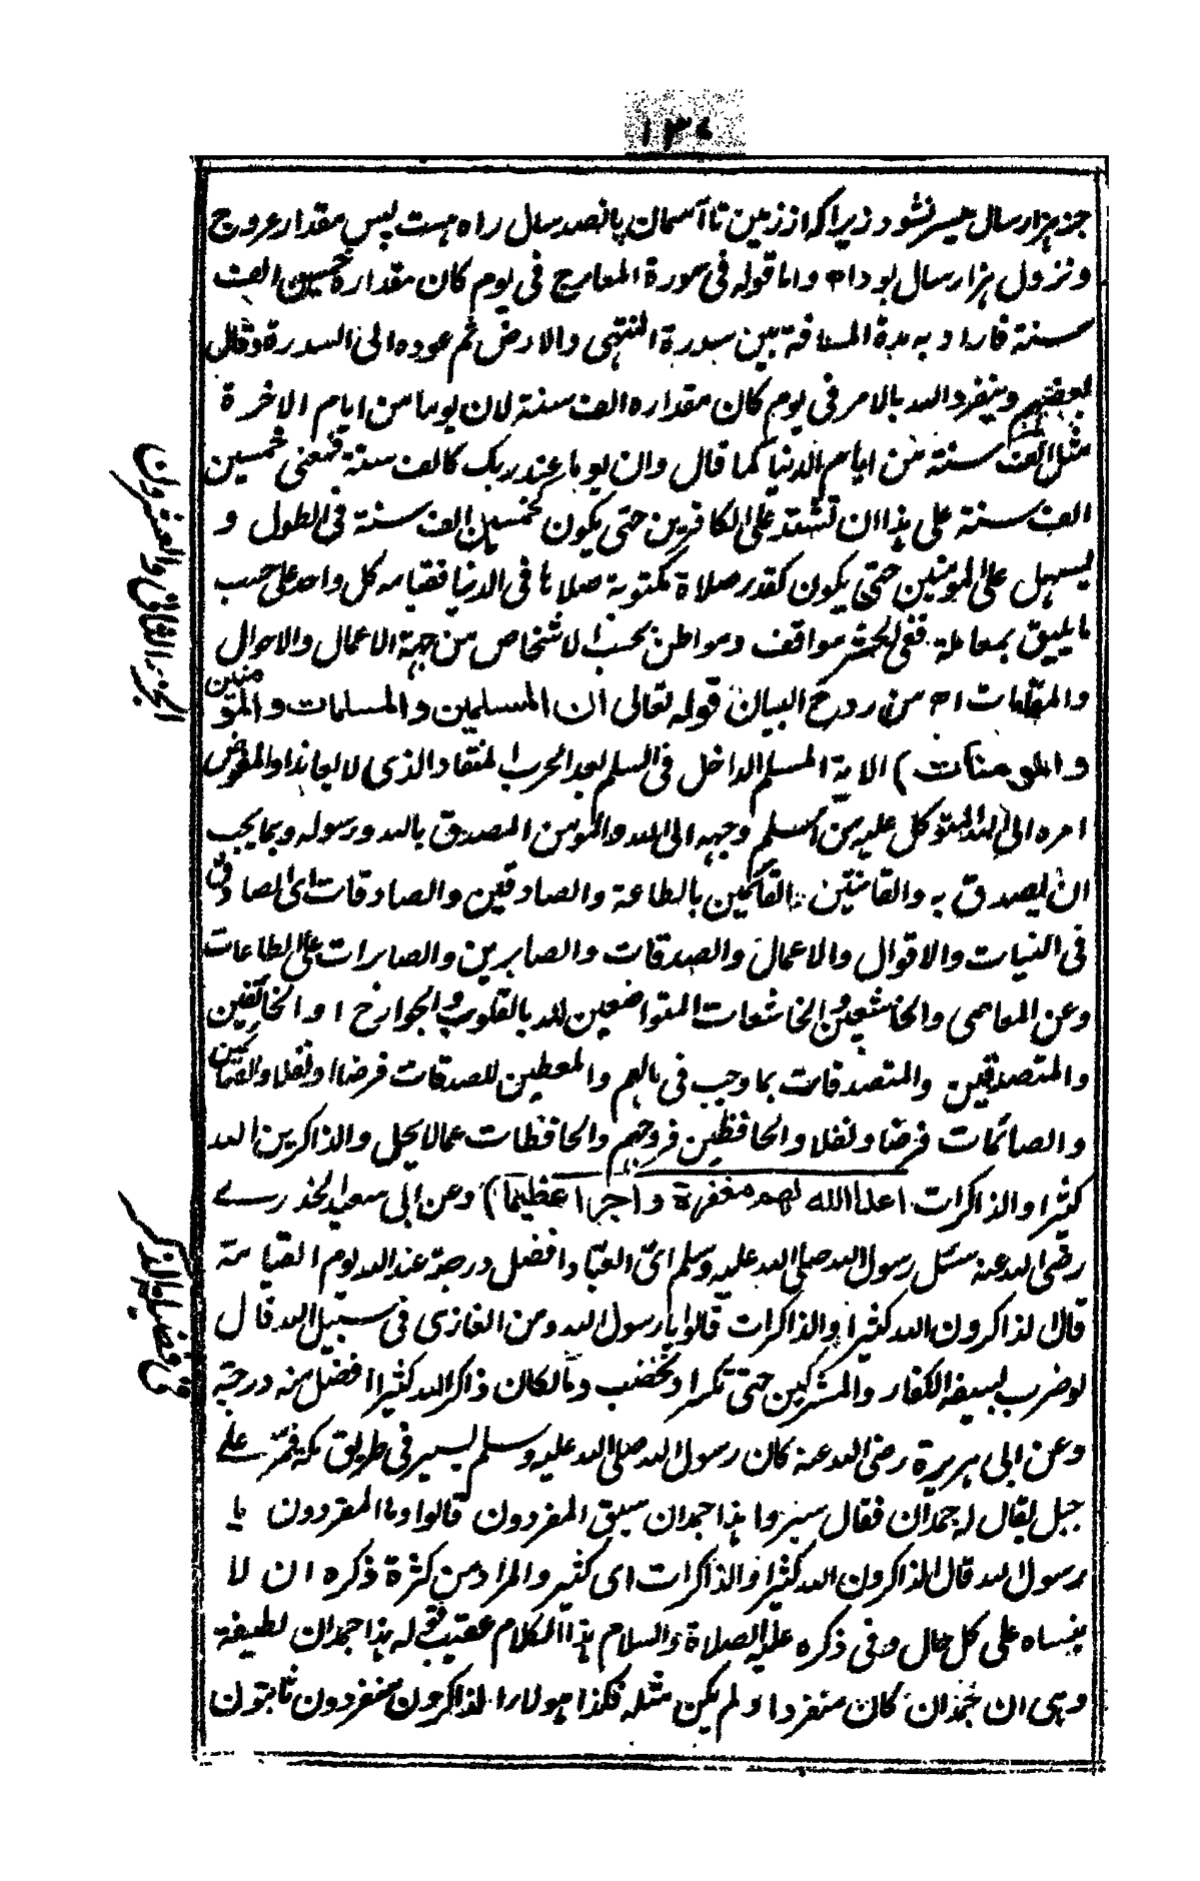 ١٣٤
جز بهزار سال میسر نشود زیرا که از زمین تا آسمان پانصد سال راه هست پس مقدار عروج
ونزول هزار سال بود اه واما قوله فی سورة المعارج فی یوم کان مقداره خمسین الف
سنة فاراد به مدة المسافة بین سدرة المنتهی والارض ثم عوده الی السدرة وقال
بعضهم وینفرد الله بالامر فی یوم کان مقداره الف سنة لان یوما من ایام الاخرة
مثل الف سنة من ایام الدنیا کما قال وان یوما عند ربک کالف سنة فمعنی خمسین
الف سنة علی هذا ان تشتد علی الکافرین حتی یکون کخمسین الف سنة فی الطول و
یسهل علی المومنین حتی یکون کقدر صلاة مکتوبة صلاها فی الدنیا فقیامه کل واحد علی حسب
ما یلیق بمعاملة ففی الحشر مواقف ومواطن بحسب الاشخاص من جهة الاعمال والاحوال
والمقامات اه من روح البیان قوله تعالی ان المسلمین والمسلمات والمومنین
والمومنات) الایة المسلم الداخل فی السلم بعد الحرب المنقاد الذی لا یعاند او المفوض
امره الی الله المتوکل علیه من اسلم وجهه الی الله والمومن المصدق بالله ورسوله وبما یجب
ان یصدق به والقانتین القائمین بالطاعة والصادقین والصادقات ای الصادقین
فی النیات والاقوال والاعمال والصدقات والصابرین والصابرات علی الطاعات
وعن المعاصی والخاشعین والخاشعات المتواضعین لله بالقلوب والجوارح او الخائفین
والمتصدقین والمتصدقات بما وجب فی مالهم والمعطین للصدقات فرضا او نفلا والصائمین
والصائمات فرضا ونفلا والحافظین فروجهم والحافظات عما لا یحل والذاکرین الله
کثیرا والذاکرات اعد الله لهم مغفرة واجرا عظیما) وعن ابی سعید الخدرے
رضی الله عنه سئل رسول الله صلی الله علیه وسلم ای العباد افضل درجة عند الله یوم القیامة
قال الذاکرون الله کثیرا والذاکرات قالوا یا رسول الله ومن الغازی فی سبیل الله قال
لو ضرب بسیفه الکفار والمشرکین حتی تکسر او تخضب دما لکان ذاکر الله کثیرا افضل منه درجة
وعن ابی هریرة رضی الله عنه کان رسول الله صلی الله علیه وسلم یسیر فی طریق مکة فمر علے
جبل یقال له جمدان فقال سیروا هذا جمدان سبق المفردون قالوا وما المفردون یا
رسول الله قال الذاکرون الله کثیرا والذاکرات ای کثیر والمراد من کثرة ذکره ان لا
ینساه علی کل حال وفی ذکره علیه الصلاة والسلام هذا الکلام عقیب قوله هذا جمدان لطیفة
وهی ان جمدان کان منفردا ولم یکن مثله فکذا هولاء الذاکرون منفردون ثابتون
الجزء الثانی والعشرون